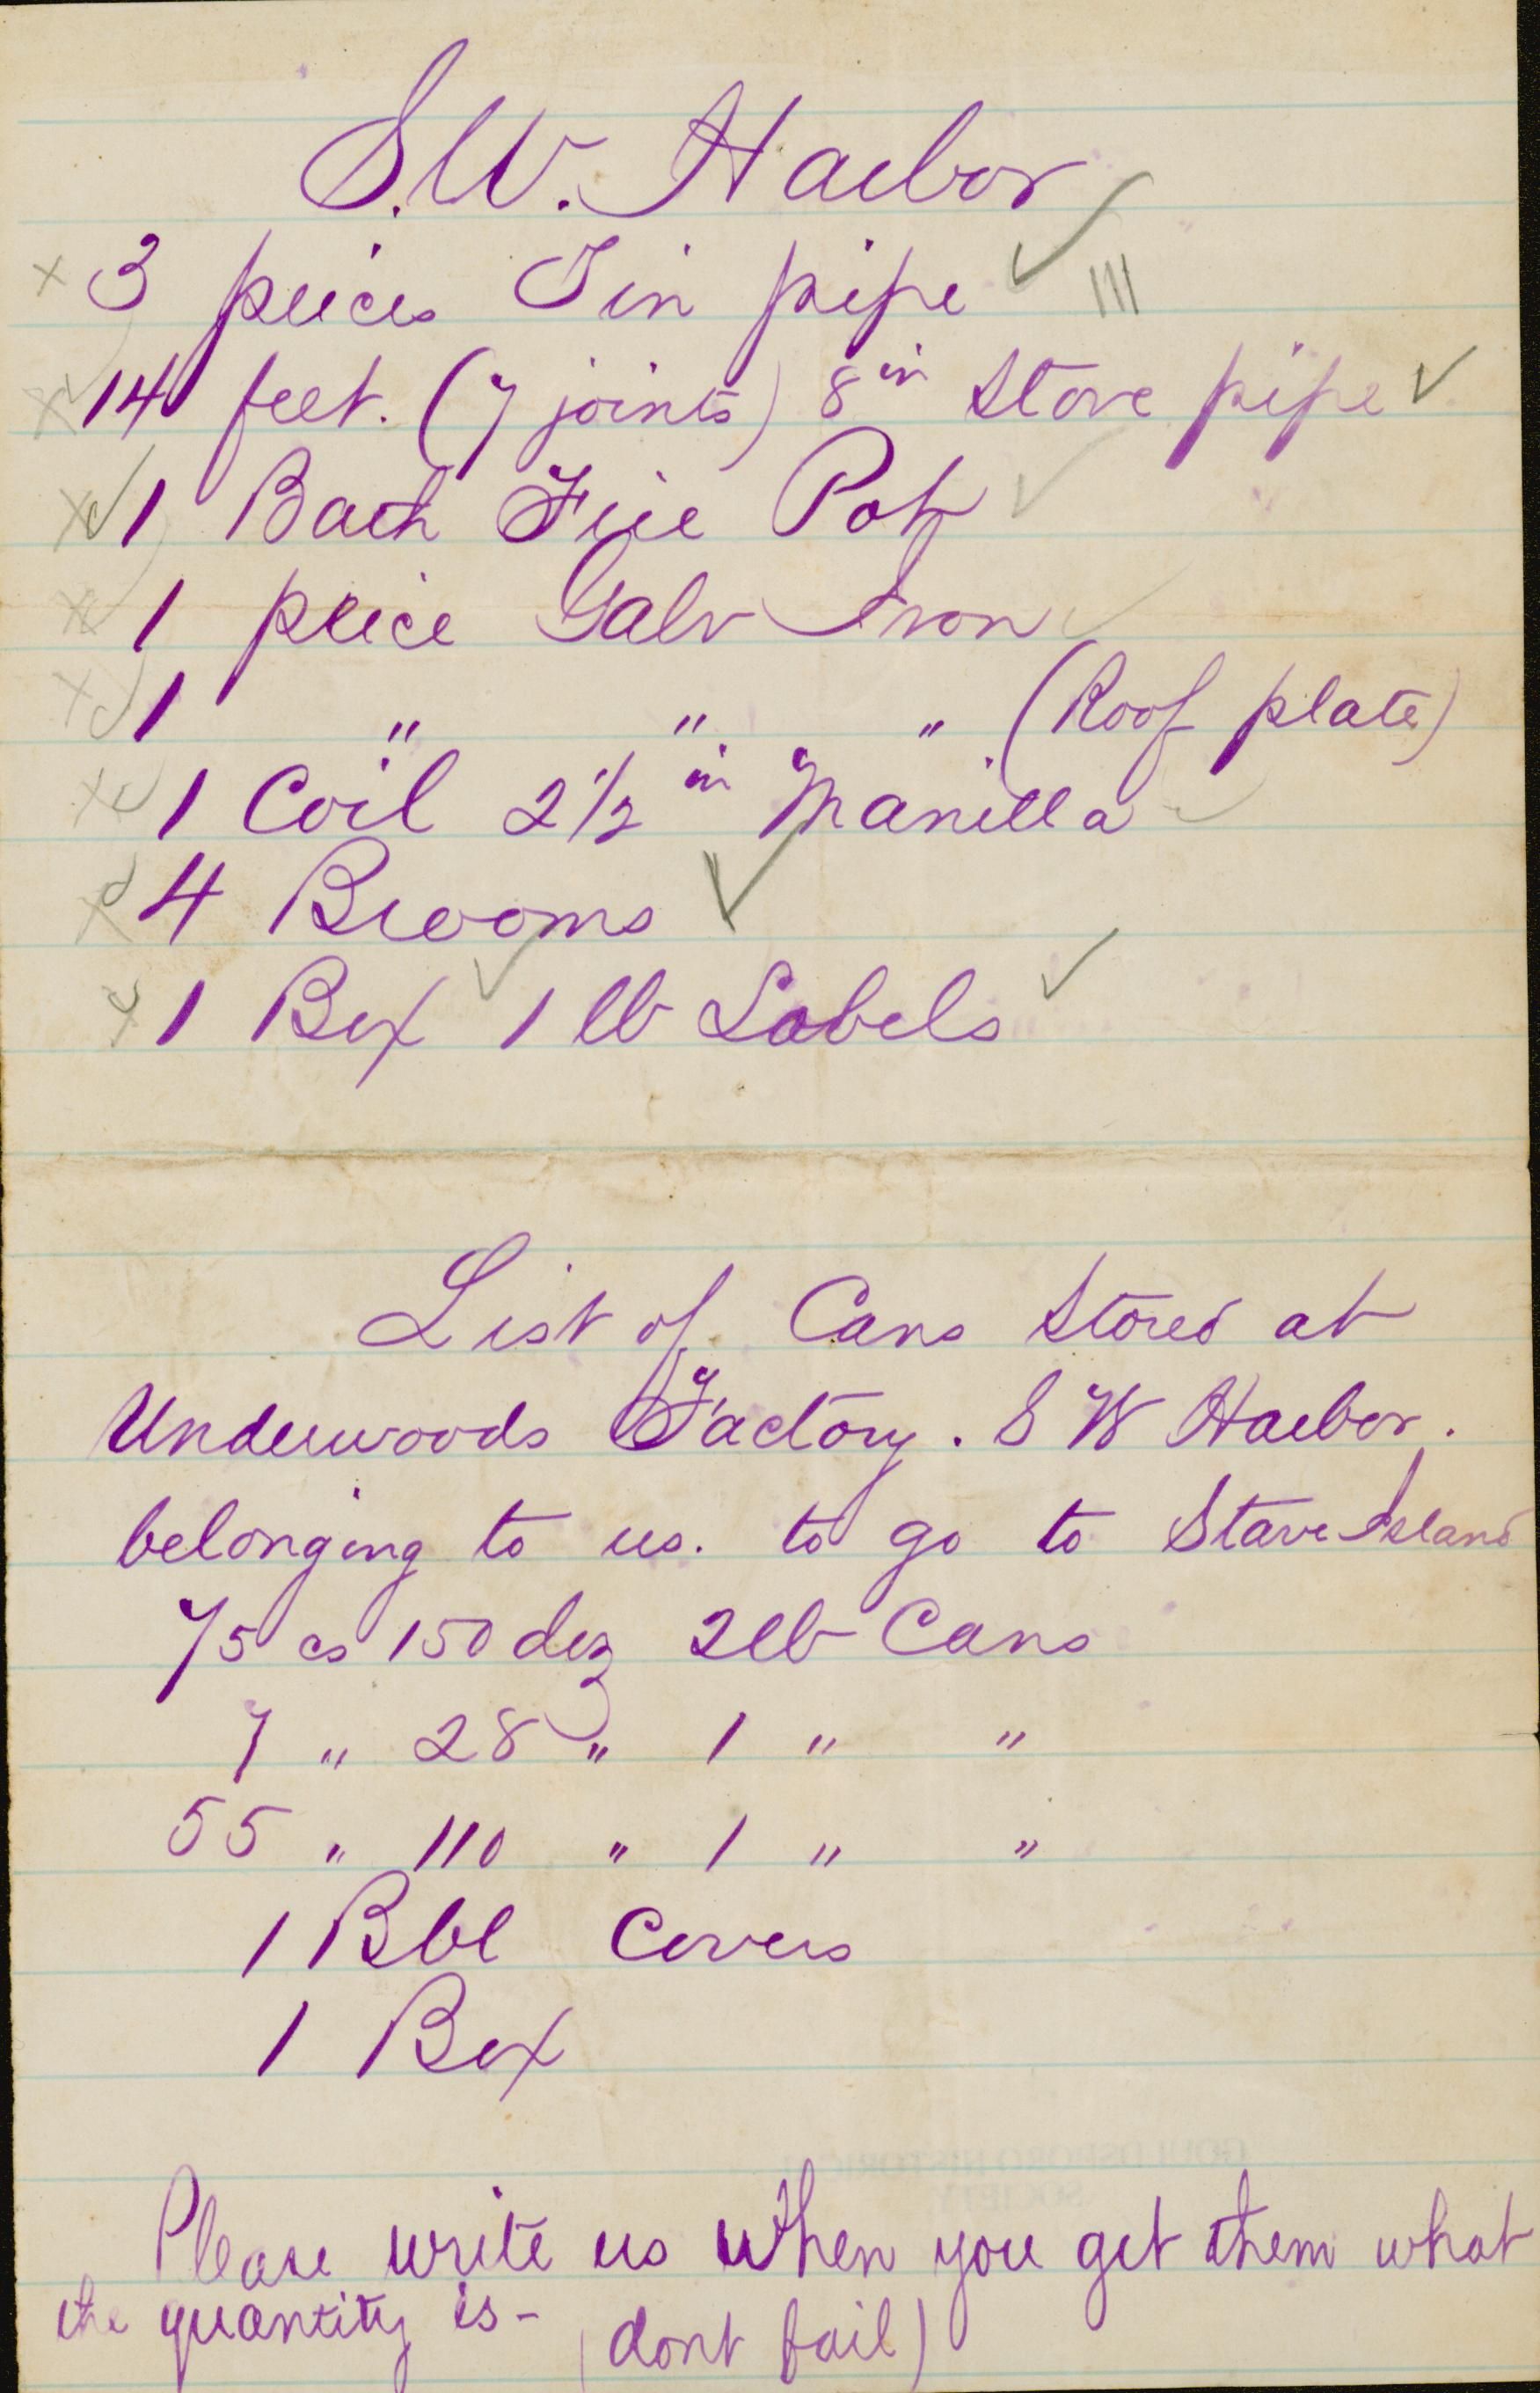 S.W. Harbor
3 peices Tin pipe
14 feet. (7 joints) 8 in Stove pipe
1 Bach Fire Pot
1 peice Galv Iron
1 " " " (Roof plate)
1 Coil 2 1/2 in Manilla
4 Brooms
1 Box 1 lb Labels
List of Cans Stored at
Underwoods Factory. S W Harbor.
belonging to us. to go to Stave Island
75 cs 150 doz 2 lb Cans
7 " 28 " 1 " "
55 " 110 " 1 " "
1 Bbl Covers
1 Box
Please write us when you get them what
the quantity is - (dont fail)